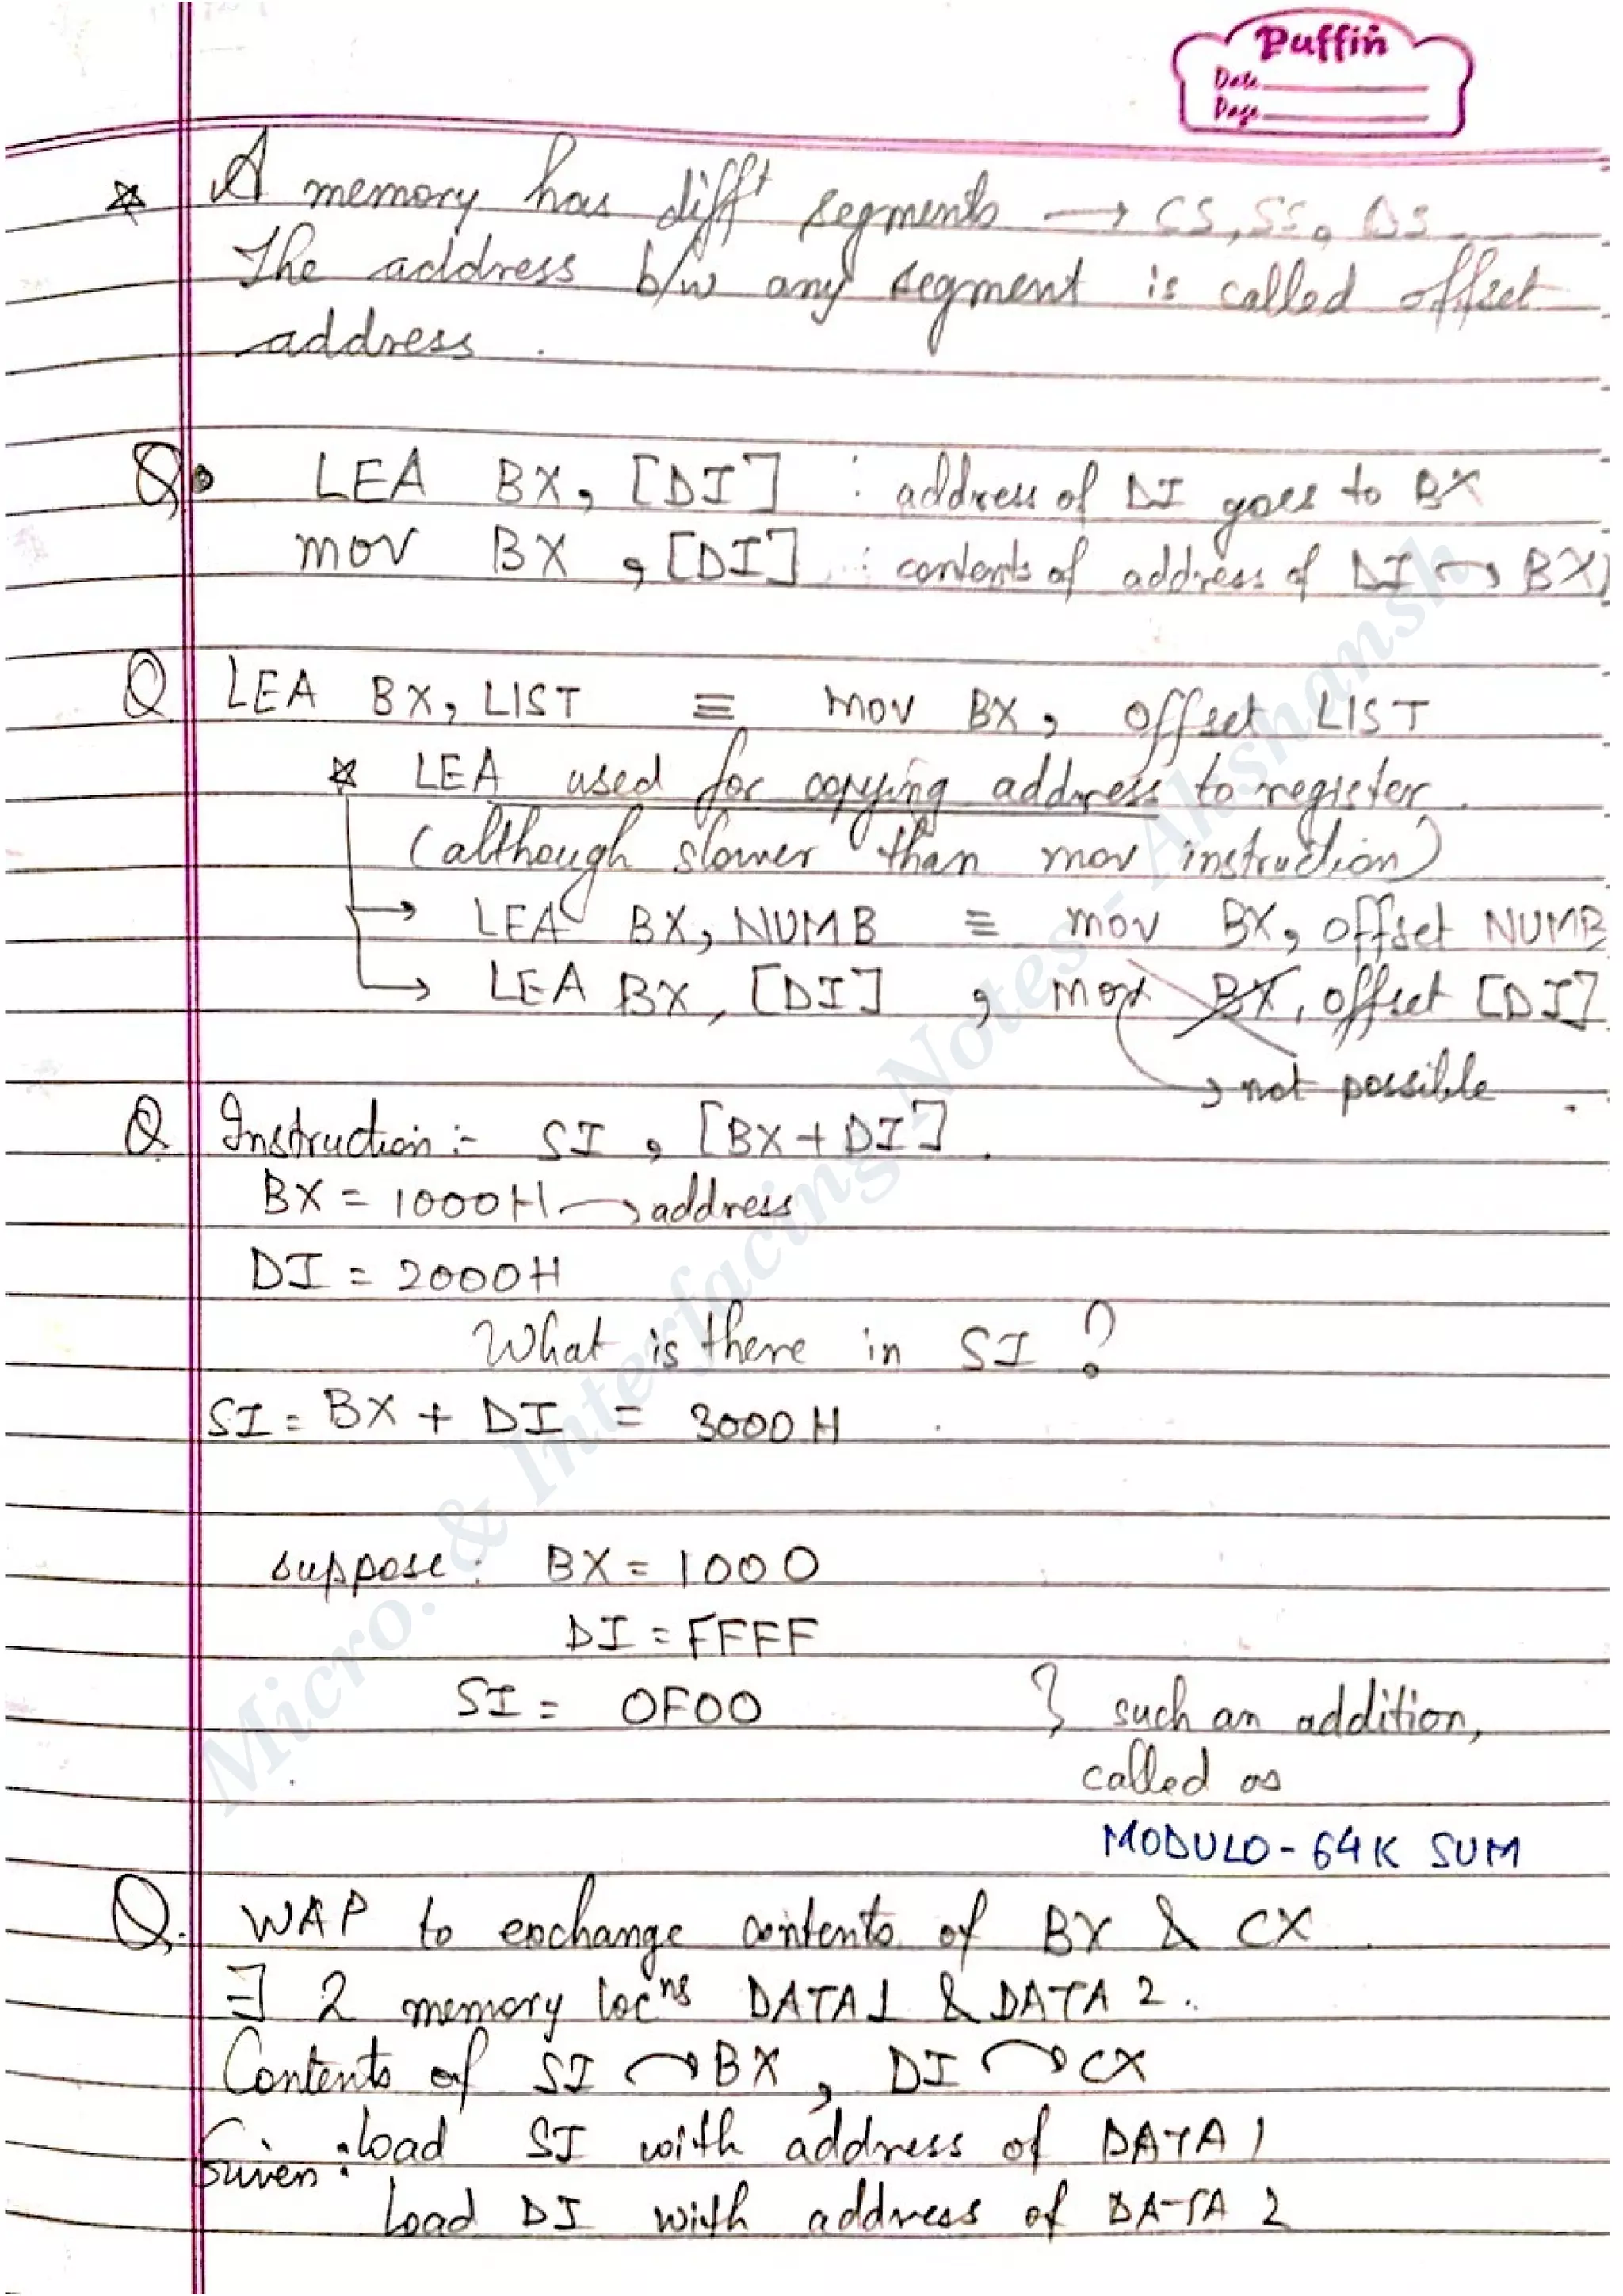 Puffin
Date
Page
☆ A memory has diff^t segments → CS, SS, DS
The address b/w any segment is called offset
address.
Q. LEA BX, [DI] : address of DI goes to BX
mov BX, [DI] : contents of address of DI → BX)
Q LEA BX, LIST ≡ mov BX, offset LIST
☆ LEA used for copying address to register.
(although slower than mov instruction)
→ LEA BX, NUMB ≡ mov BX, offset NUMB
→ LEA BX, [DI] , mov BX, offset [DI]
→ not possible.
Q. Instruction :- SI, [BX + DI].
BX = 1000H → address
DI = 2000H
What is there in SI ?
SI = BX + DI = 3000H.
suppose : BX = 1000
DI = FFFF
SI = 0F00 } such an addition,
called as
MODULO - 64K SUM
Q. WAP to exchange contents of BX & CX.
∃ 2 memory loc^ns DATA1 & DATA 2.
Contents of SI → BX, DI → CX
Given : load SI with address of DATA 1
Load DI with address of DATA 2
Micro. & Interfacing Notes - Akshansh